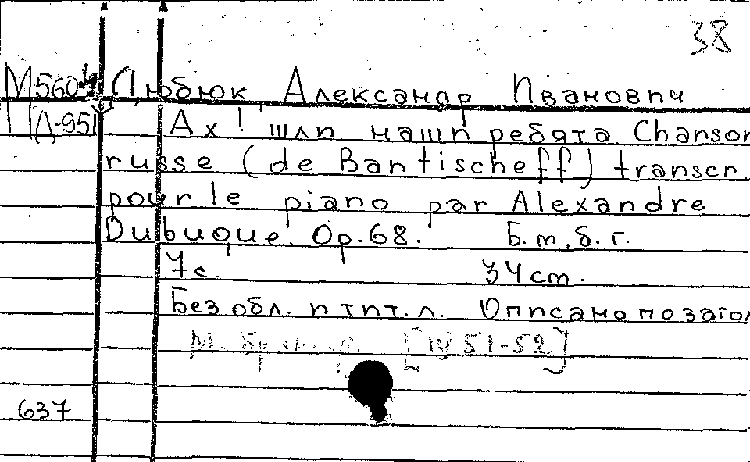 38
М560ч Дюбюк, Александр Иванович
Д-951 Ах! шли наши ребята Chanson
russe (de Bantischeff) transcr.
pour le piano par Alexandre
Dubuque. Op. 68. Б.м., б.г.
7с. 34 cm.
Без обл. и тит. л. Описано по загол
[IV 51-52]
637